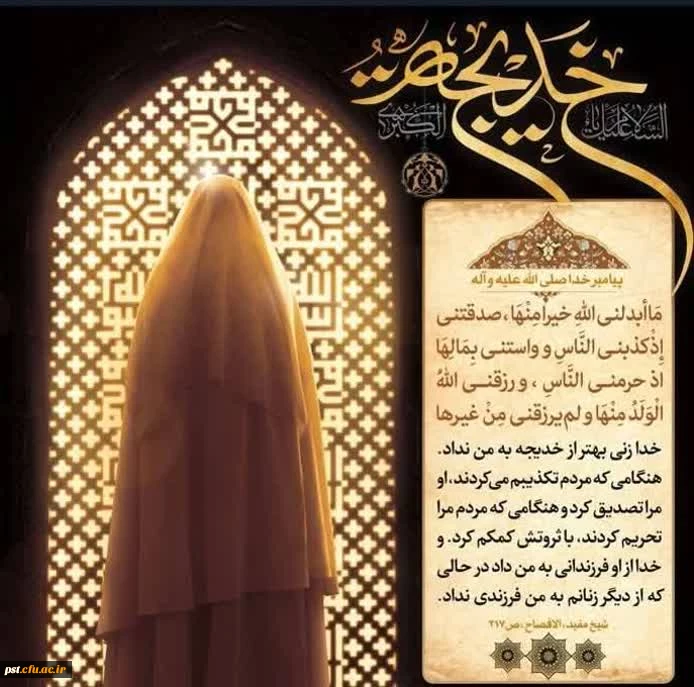 خدیجه
الکبری
السلام علیک یا
پیامبر خدا صلی الله علیه و آله
مَا أبدلنی اللهِ خیراً مِنْهَا، صدقتنی
إِذْ کذبنی النَّاسِ و واستنی بِمَالِهَا
اذ حرمنی النَّاسِ ، و رزقنی اللهُ
الْوَلَدُ مِنْهَا و لم یرزقنی مِنْ غیرها
خدا زنی بهتر از خدیجه به من نداد.
هنگامی که مردم تکذیبم می‌کردند، او
مرا تصدیق کرد و هنگامی که مردم مرا
تحریم کردند، با ثروتش کمکم کرد. و
خدا از او فرزندانی به من داد در حالی
که از دیگر زنانم به من فرزندی نداد.
شیخ مفید، الافصاح، ص۲۱۷
pst.cfu.ac.ir